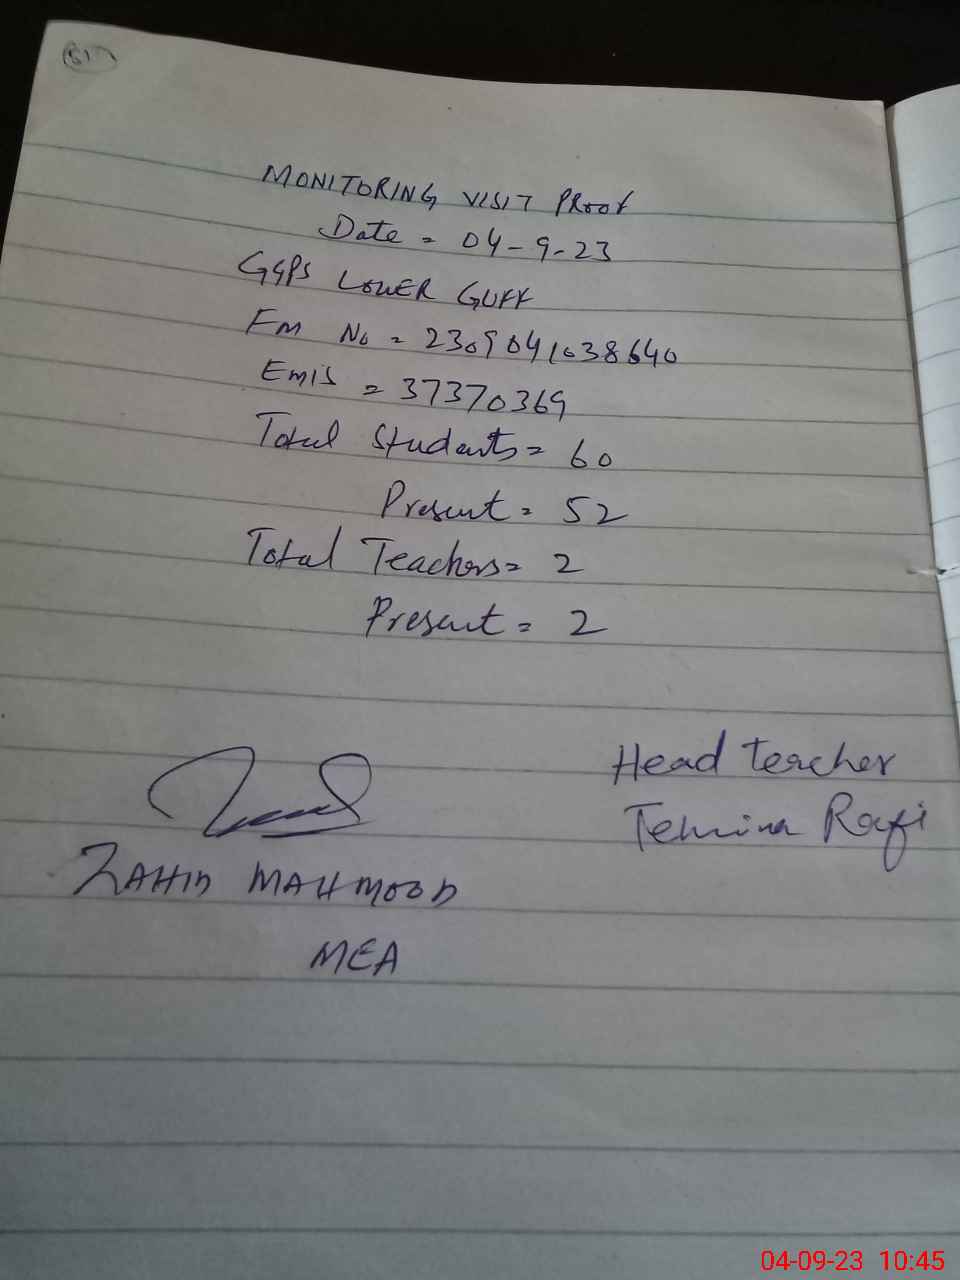 MONITORING VISIT PROOF
Date = 04-9-23
GGPS LOWER GUFF
FM No = 2309041038640
Emis = 37370369
Total Students = 60
Present = 52
Total Teachers = 2
Present = 2
Head teacher
Tehmina Rafi
ZAHID MAHMOOD
MEA
04-09-23 10:45